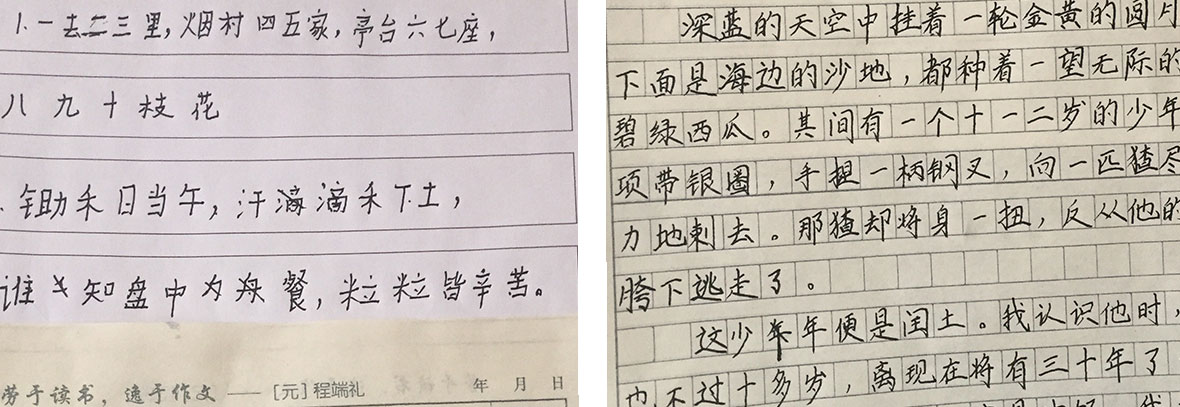 1. 一去二三里,烟村四五家,亭台六七座,
八九十枝花
锄禾日当午,汗滴禾下土,
谁知盘中餐,粒粒皆辛苦。
劳于读书,逸于作文 —— [元] 程端礼 年 月 日
深蓝的天空中挂着一轮金黄的圆月
下面是海边的沙地,都种着一望无际的
碧绿西瓜。其间有一个十一二岁的少年
项带银圈,手捏一柄钢叉,向一匹猹尽
力地刺去。那猹却将身一扭,反从他的
胯下逃走了。
这少年便是闰土。我认识他时,
也不过十多岁,离现在将有三十年了